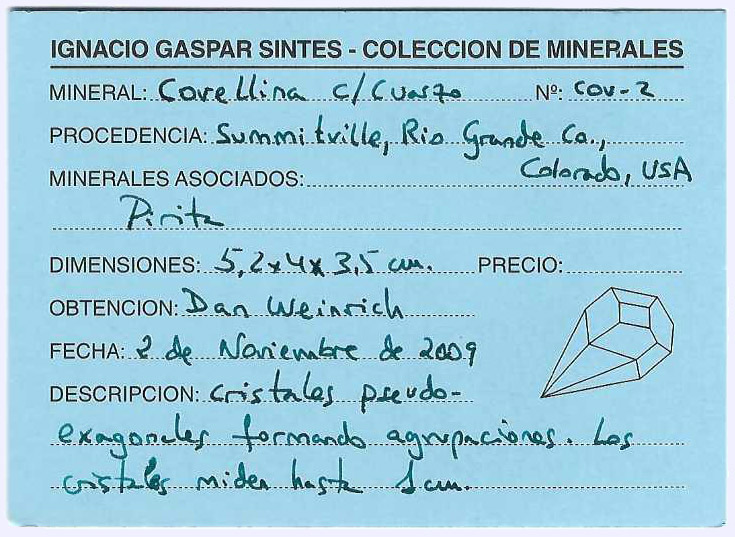 IGNACIO GASPAR SINTES - COLECCION DE MINERALES
MINERAL: Covellina c/Cuarzo Nº: COV-2
PROCEDENCIA: Summitville, Rio Grande Co.,
Colorado, USA
MINERALES ASOCIADOS:
Pirita
DIMENSIONES: 5,2x4x3,5 cm. PRECIO:
OBTENCION: Dan Weinrich
FECHA: 2 de Noviembre de 2009
DESCRIPCION: cristales pseudo-
exagonales formando agrupaciones. Los
cristales miden hasta 1 cm.